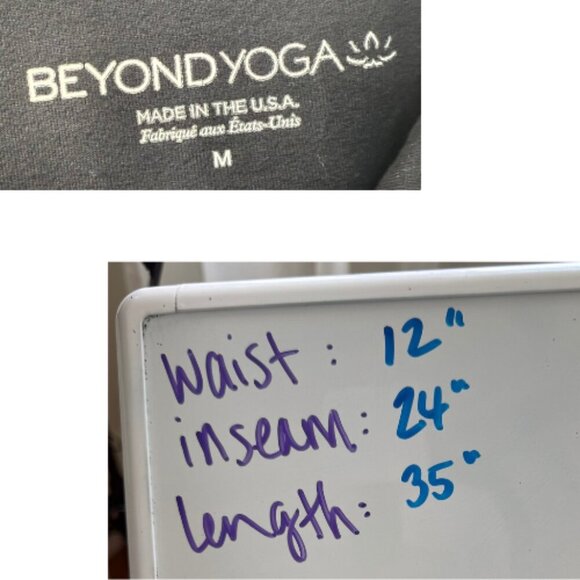 BEYOND YOGA
MADE IN THE U.S.A.
Fabriqué aux États-Unis
M
waist: 12"
inseam: 24"
length: 35"